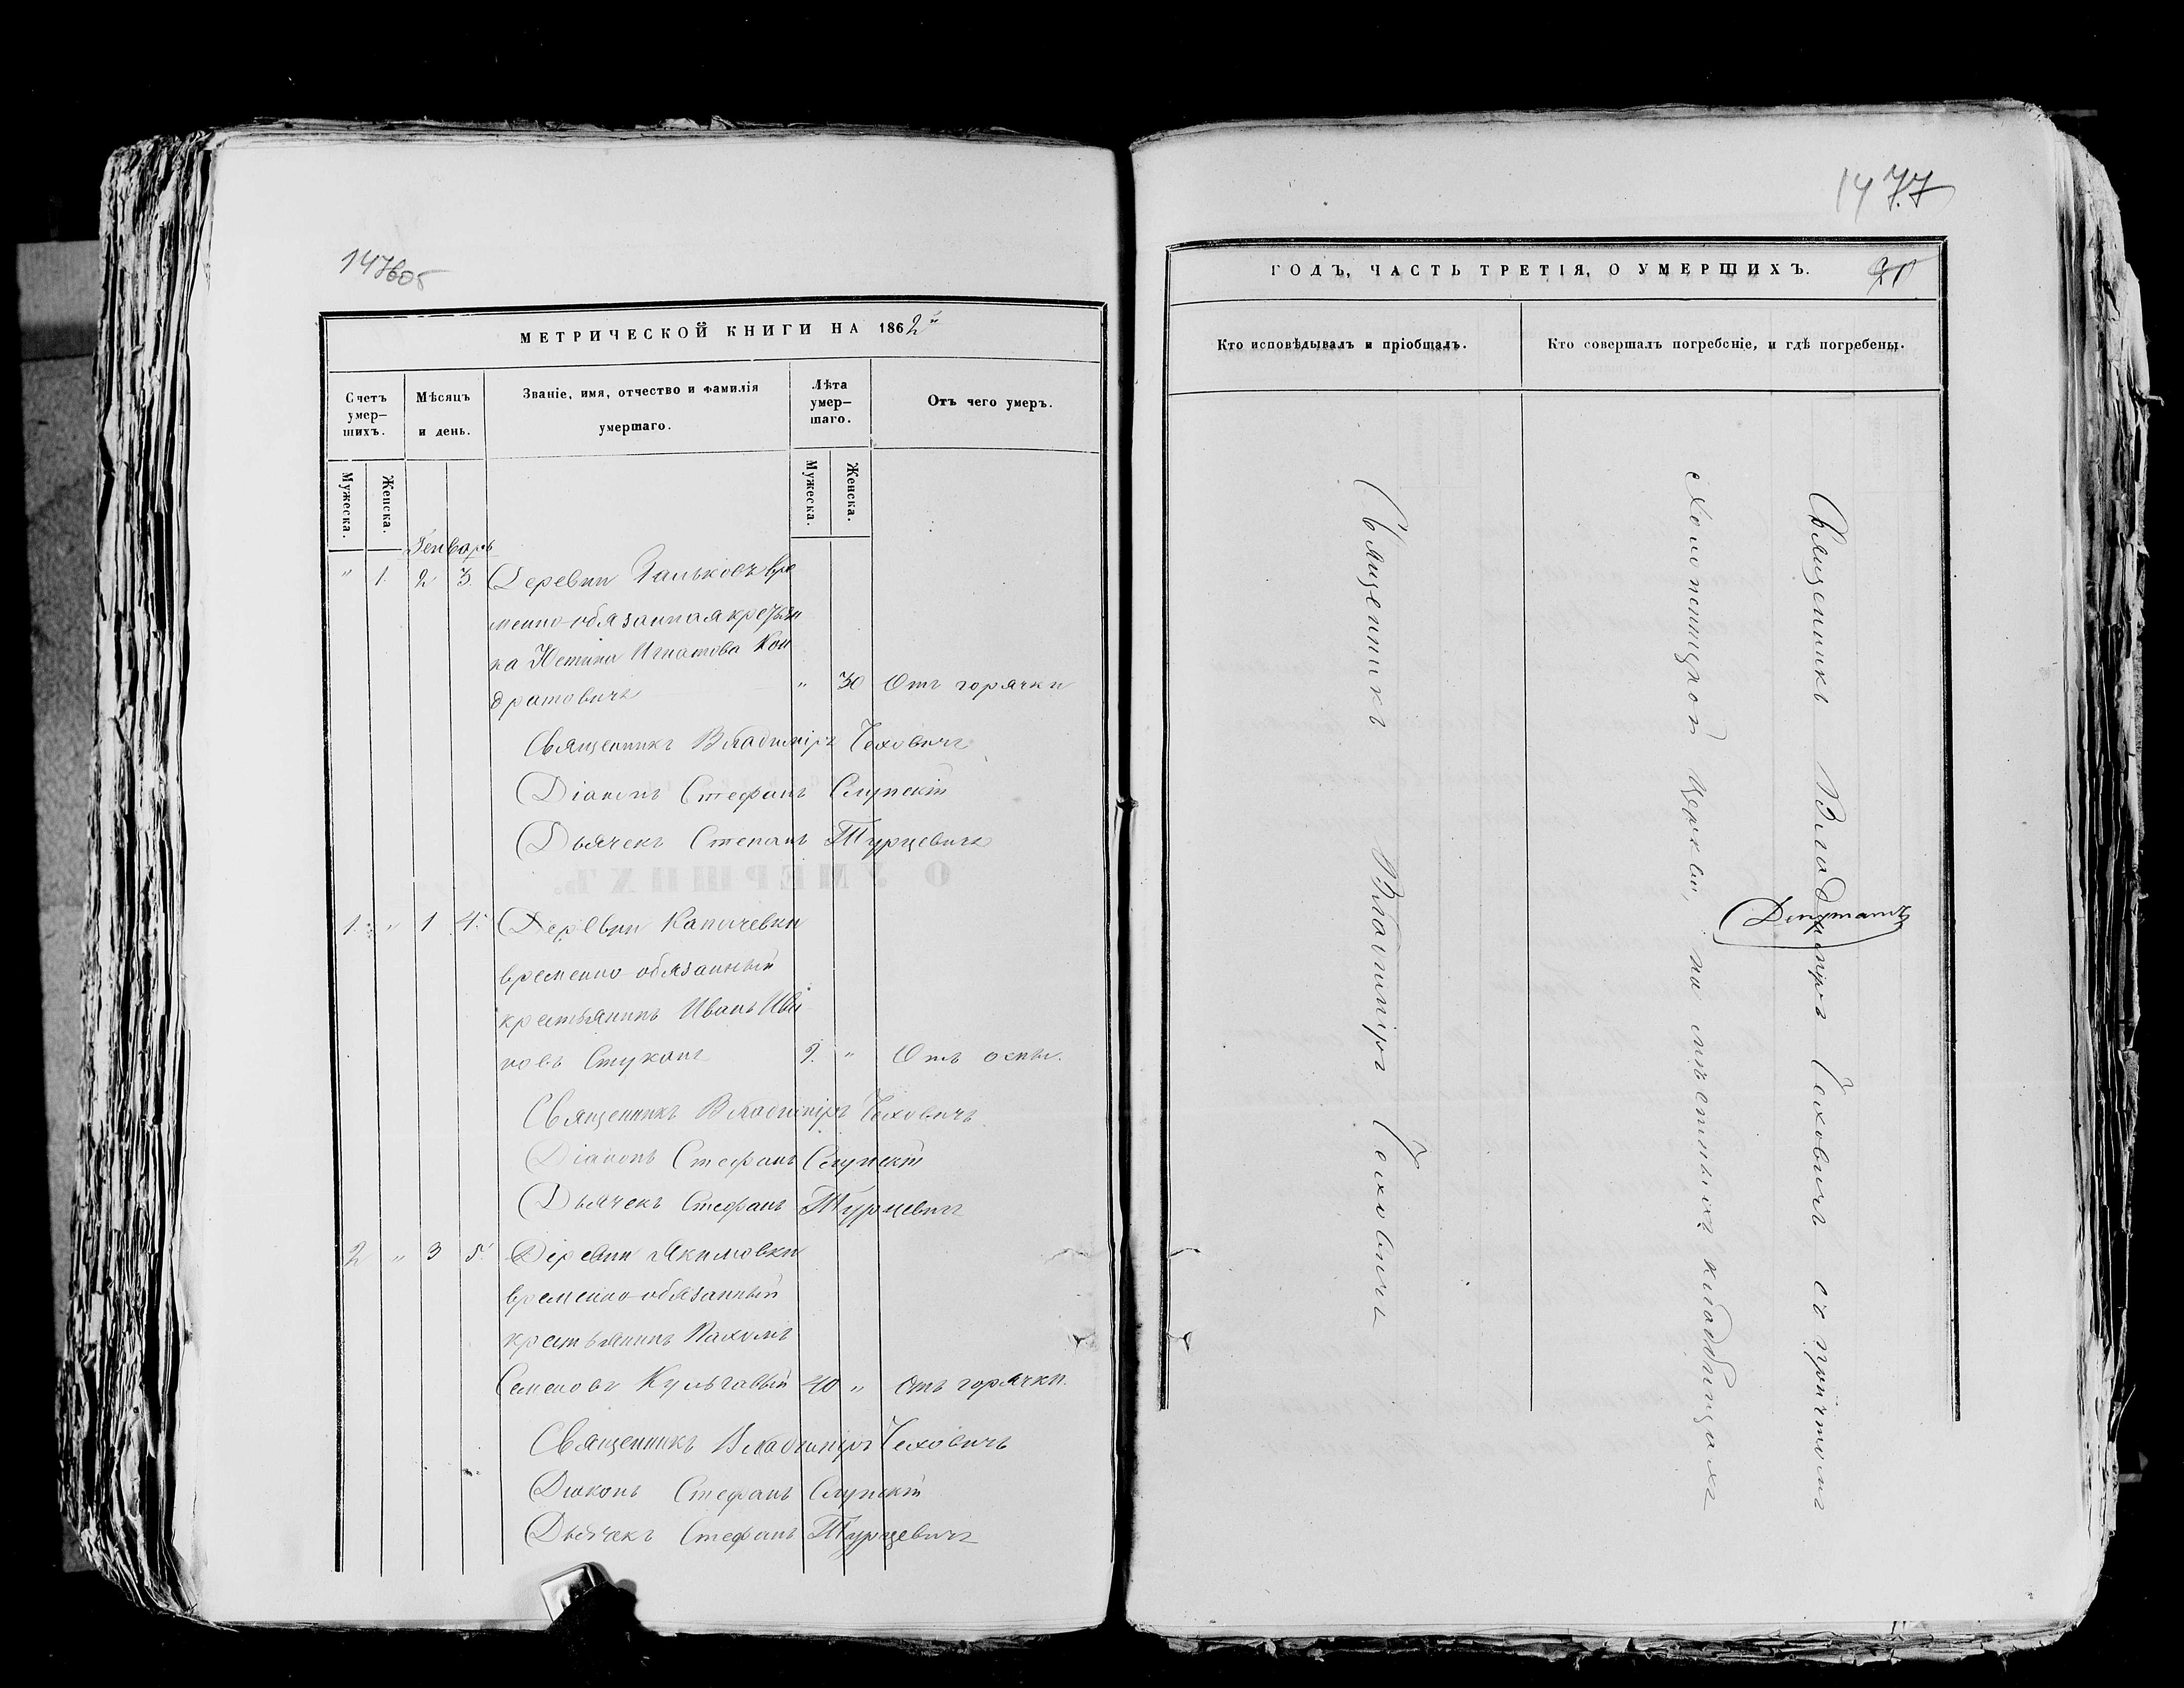 147об
МЕТРИЧЕСКОЙ КНИГИ НА 1862й
Счетъ умер-шихъ.
Мѣсяцъ и день.
Званіе, имя, отчество и фамилія умершаго.
Лѣта умер-шаго.
Отъ чего умеръ.
Мужеска.
Женска.
Мужеска.
Женска.
Генварь
" 1. 2 3. Деревни вре
менно-обязанная крестьян
ка Юстина Игнатова Кон
дратовичъ " 30 Отъ горячки
Священникъ Владиміръ Чеховичъ
Діаконъ Стефанъ Слупскій
Дьячекъ Степанъ Турцевичъ
1. " 1 4. Деревни Капичевки
временно-обязанный
крестьянинъ Иванъ Ива
новъ Стуканъ " Отъ оспы.
Священникъ Владиміръ Чеховичъ
Діаконъ Стефанъ Слупскій
Дьячекъ Стефанъ Турцевичъ
2 " 3 5. Деревни Якимовки
временно-обязанный
крестьянинъ Пахомъ
Семеновъ Кульгавый 40 " Отъ горячки.
Священникъ Владиміръ Чеховичъ
Діаконъ Стефанъ Слупскій
Дьячекъ Стефанъ Турцевичъ
ГОДЪ, ЧАСТЬ ТРЕТІЯ, О УМЕРШИХЪ.
Кто исповѣдывалъ и пріобщалъ.
Кто совершалъ погребеніе, и гдѣ погребены.
Священникъ Владиміръ Чеховичъ
Священникъ Владиміръ Чеховичъ съ причтомъ
Холопеницкой церкви, на мѣстныхъ кладбищахъ
Депутатъ